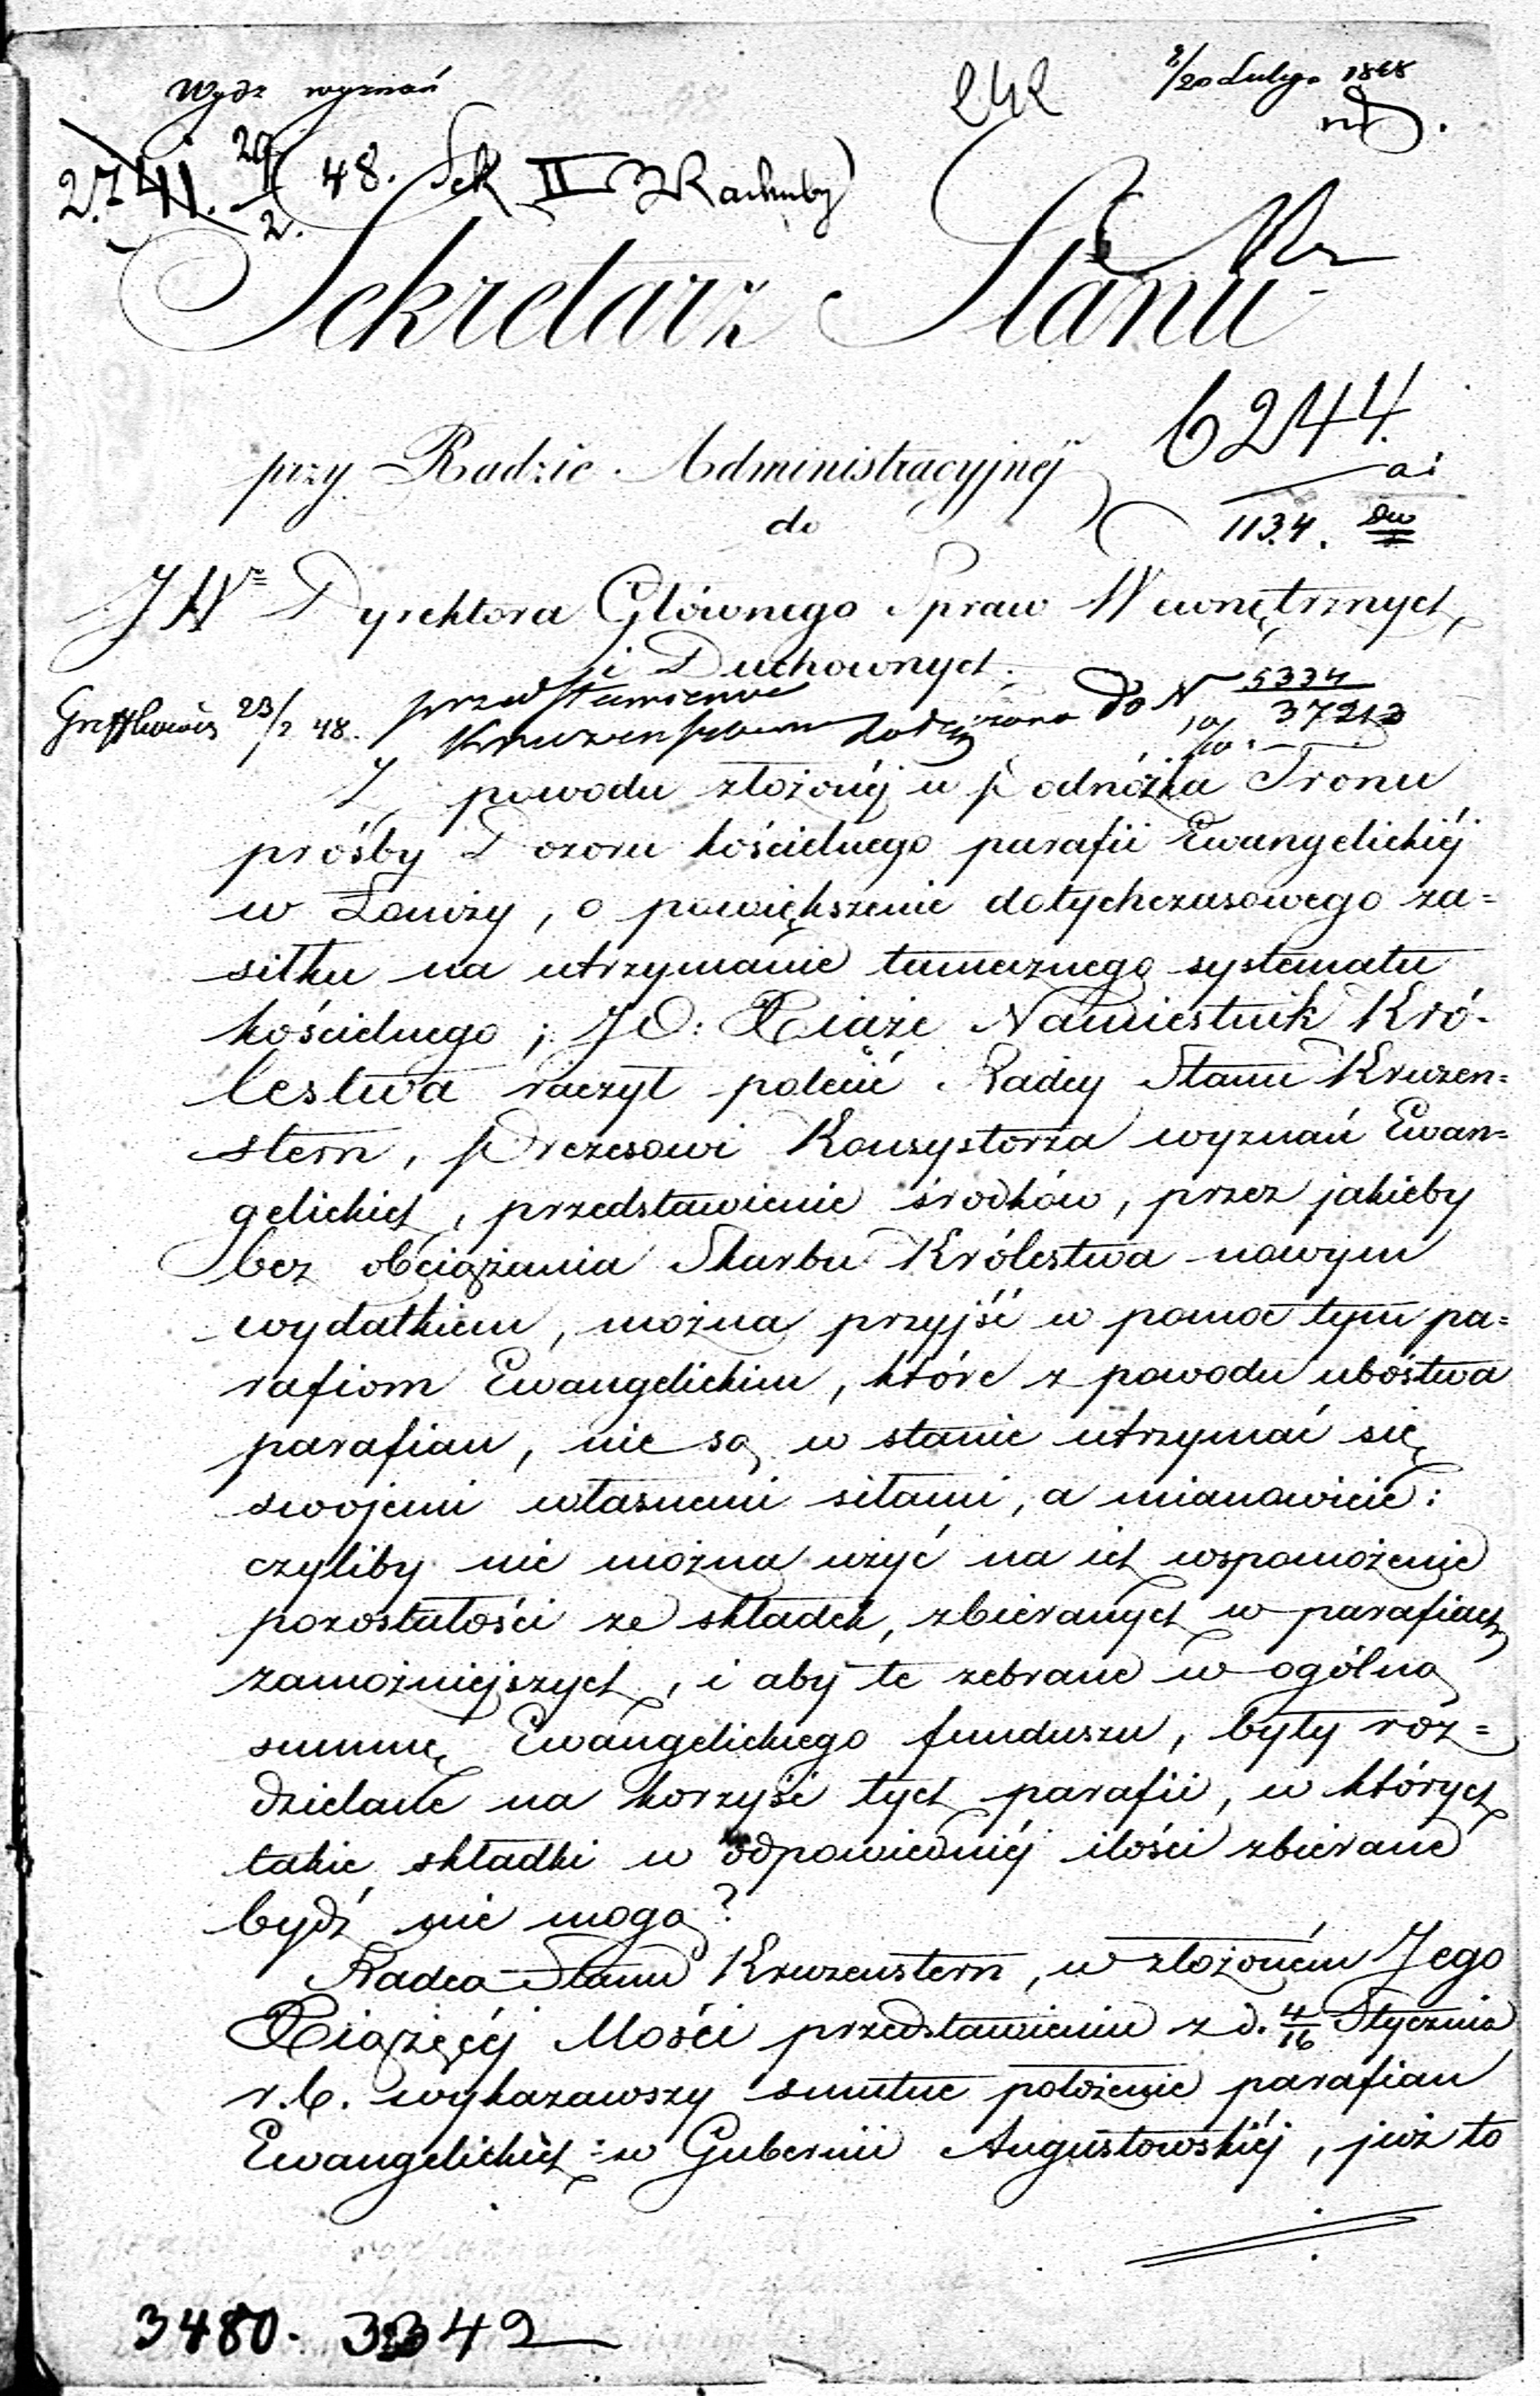 Wydz wyznań
242
8/20 Lutego 1848
2741. 29/2 48. Sek II Rachuby
Sekretarz Stanu
6244.
przy Radzie Administracyjnéj
1134.
do
JWo Dyrektora Głównego Spraw Wewnętrznych
i Duchownych.
23/2 48. przedstawienie do N 5334
37213
Z powodu złożonéj u podnóżka Tronu
prośby Dozoru kościelnego parafii Ewangelickiéj
w Łomży, o powiększenie dotychczasowego za=
siłku na utrzymanie tamecznego systematu
kościelnego; JO: Xiąże Namiestnik Kró-
lestwa raczył polecić Radcy Stanu Kruzen=
stern, Prezesowi Konsystorza wyznań Ewan=
gelickich, przedstawienie środków, przez jakieby
bez obciążenia Skarbu Królestwa nowym
wydatkiem, można przyjść w pomoc tym pa=
rafiom Ewangelickim, które z powodu ubóstwa
parafian, nie są w stanie utrzymać się
swojemi własnemi siłami, a mianowicie:
czyliby nie można użyć na ich wspomożenie
pozostałości ze składek, zbieranych w parafiach
zamożniejszych, i aby te zebrane w ogólną
summę Ewangelickiego funduszu, były roz=
dzielane na korzyść tych parafii, w których
takie składki w odpowiedniéj ilości zbierane
bydź nie mogą?
Radca Stanu Kruzenstern, w złożoném Jego
Xiążęcéj Mości przedstawieniu z d. 4/16 Stycznia
r.b. wykazawszy smutne położenie parafian
Ewangelickich w Gubernii Augustowskiéj, już to
3480. 3349